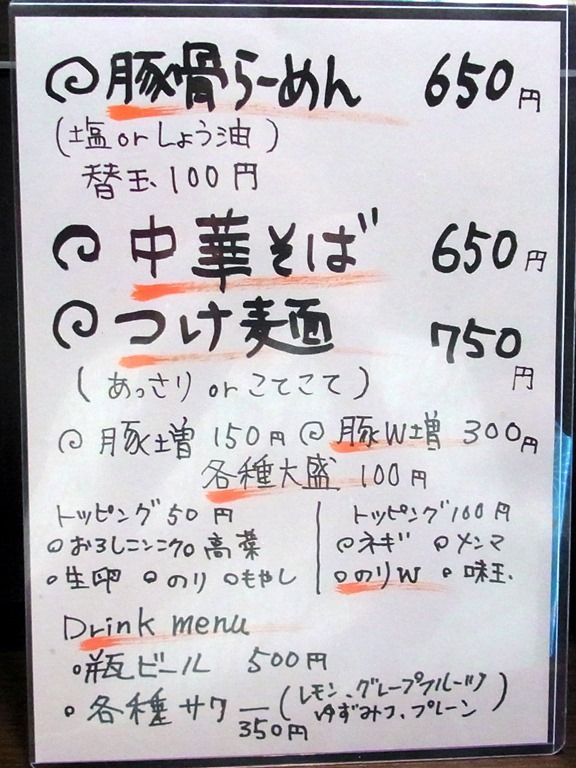 豚骨らーめん 650円
(塩orしょう油)
替玉 100円
中華そば 650円
つけ麺 750円
(あっさり or こてこて)
豚増 150円 豚W増 300円
各種大盛 100円
トッピング50円
おろしニンニク 高菜
生卵 のり もやし
トッピング100円
ネギ メンマ
のりW 味玉
Drink menu
瓶ビール 500円
各種サワー(レモン、グレープフルーツ
ゆずみつ、プレーン)
350円